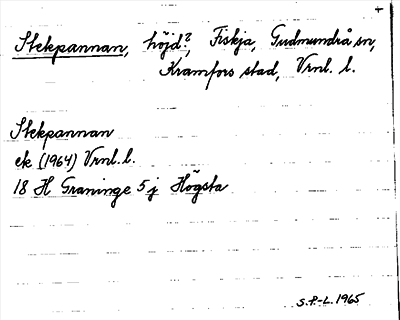 Stekpannan, höjd?, Fiskja, Gudmundrå sn,
Kramfors stad, Vrnl. l.
Stekpannan
ek (1964) Vrnl. l.
18 H Graninge 5 j Högsta
S.P.-L. 1965